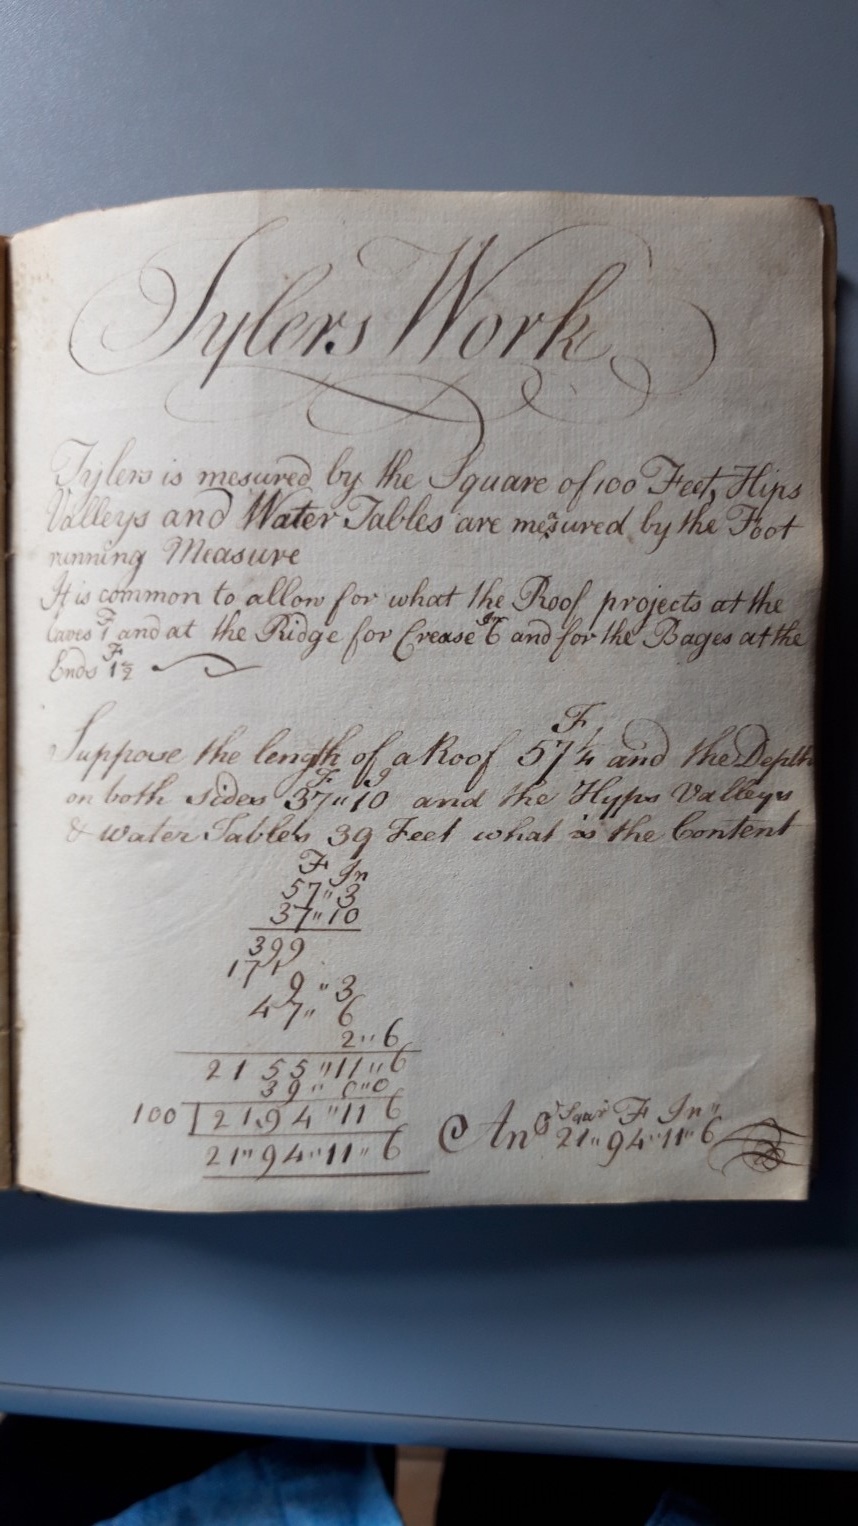 Tylers Work
Tylers is mesured by the Square of 100 Feet, Hips
Valleys and Water Tables are mesured by the Foot
running Measure
It is common to allow for what the Roof projects at the
Eaves 1 F and at the Ridge for Crease 6 In and for the Bages at the
Ends 1½ F
Suppose the length of a Roof 57¼ F and the Depth
on both sides 37 F "10 Ig and the Hyps Valleys
& water Tables 39 Feet what is the Content
F In
57"3
37"10
399
171
9"3
47"6
2"6
2155"11"6
39"0"0
100 2194"11 6
21"94"11"6
Ans Squr F In"
21"94"11"6